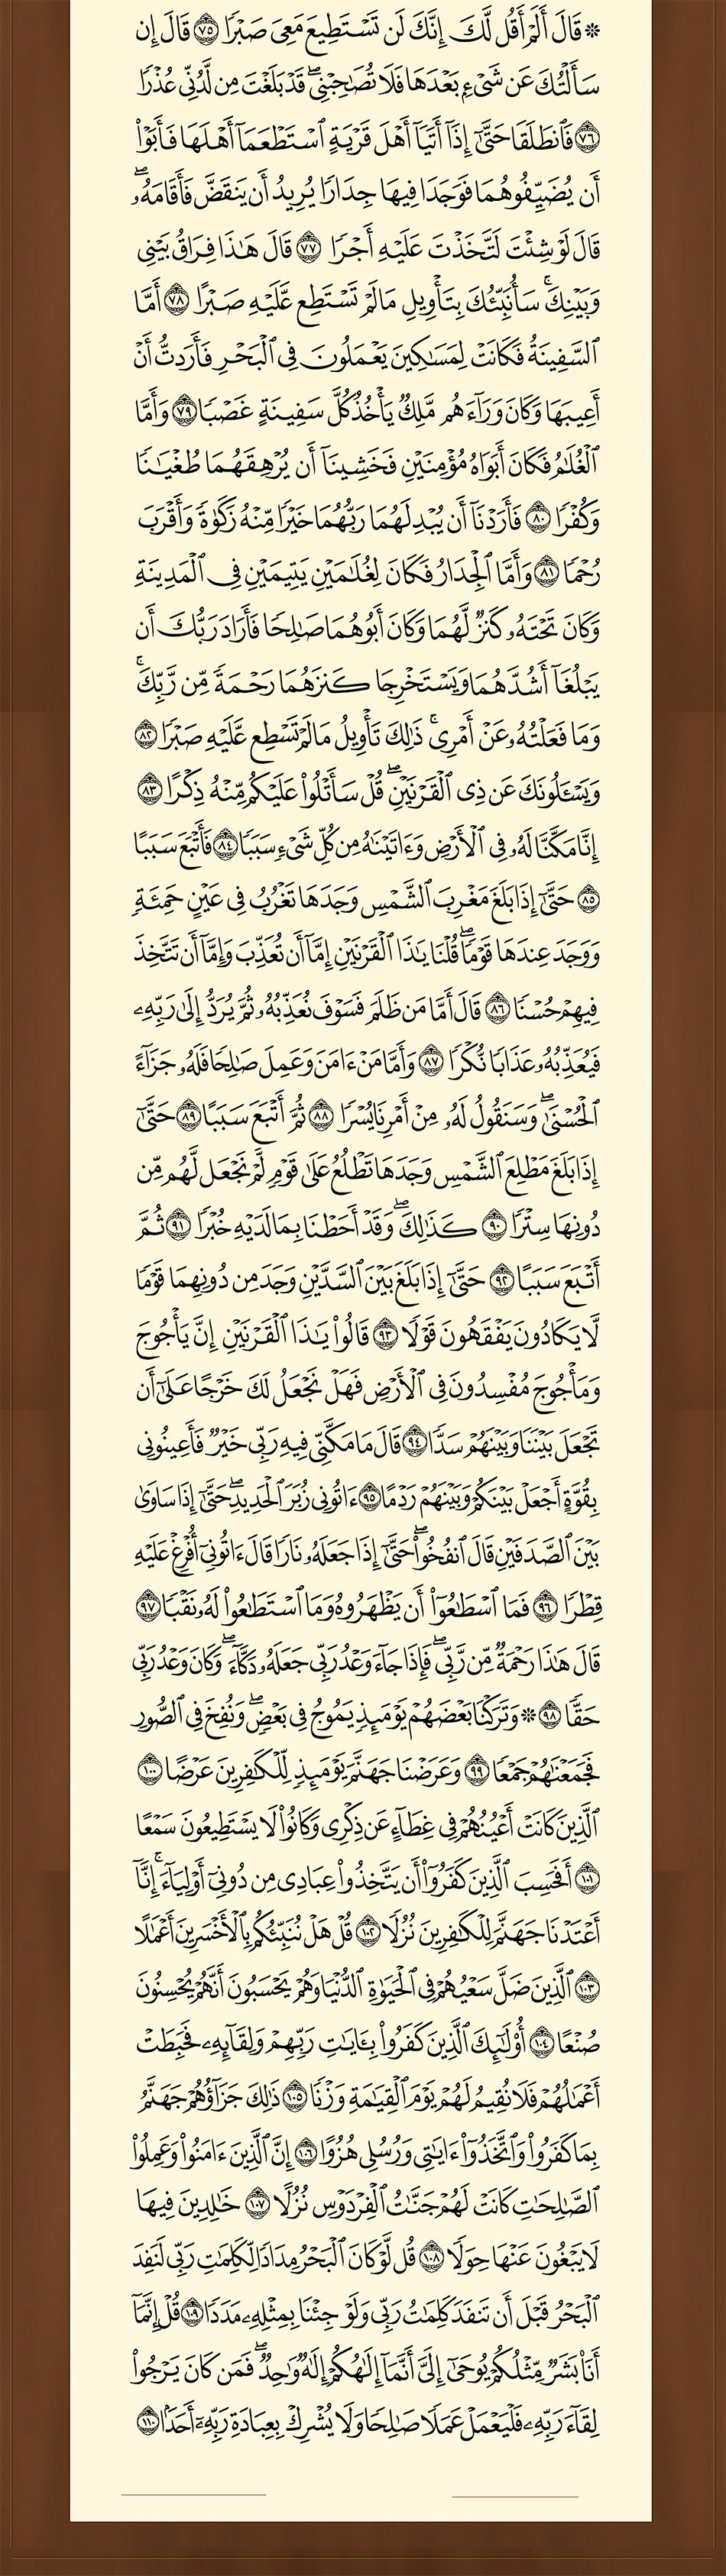 ۞ قَالَ أَلَمْ أَقُل لَّكَ إِنَّكَ لَن تَسْتَطِيعَ مَعِىَ صَبْرًا ٧٥ قَالَ إِن
سَأَلْتُكَ عَن شَىْءٍۭ بَعْدَهَا فَلَا تُصَٰحِبْنِى ۖ قَدْ بَلَغْتَ مِن لَّدُنِّى عُذْرًا
٧٦ فَٱنطَلَقَا حَتَّىٰٓ إِذَآ أَتَيَآ أَهْلَ قَرْيَةٍ ٱسْتَطْعَمَآ أَهْلَهَا فَأَبَوْا۟
أَن يُضَيِّفُوهُمَا فَوَجَدَا فِيهَا جِدَارًا يُرِيدُ أَن يَنقَضَّ فَأَقَامَهُۥ ۖ
قَالَ لَوْ شِئْتَ لَتَّخَذْتَ عَلَيْهِ أَجْرًا ٧٧ قَالَ هَٰذَا فِرَاقُ بَيْنِى
وَبَيْنِكَ ۚ سَأُنَبِّئُكَ بِتَأْوِيلِ مَا لَمْ تَسْتَطِع عَّلَيْهِ صَبْرًا ٧٨ أَمَّا
ٱلسَّفِينَةُ فَكَانَتْ لِمَسَٰكِينَ يَعْمَلُونَ فِى ٱلْبَحْرِ فَأَرَدتُّ أَنْ
أَعِيبَهَا وَكَانَ وَرَآءَهُم مَّلِكٌ يَأْخُذُ كُلَّ سَفِينَةٍ غَصْبًا ٧٩ وَأَمَّا
ٱلْغُلَٰمُ فَكَانَ أَبَوَاهُ مُؤْمِنَيْنِ فَخَشِينَآ أَن يُرْهِقَهُمَا طُغْيَٰنًا
وَكُفْرًا ٨٠ فَأَرَدْنَآ أَن يُبْدِلَهُمَا رَبُّهُمَا خَيْرًا مِّنْهُ زَكَوٰةً وَأَقْرَبَ
رُحْمًا ٨١ وَأَمَّا ٱلْجِدَارُ فَكَانَ لِغُلَٰمَيْنِ يَتِيمَيْنِ فِى ٱلْمَدِينَةِ
وَكَانَ تَحْتَهُۥ كَنزٌ لَّهُمَا وَكَانَ أَبُوهُمَا صَٰلِحًا فَأَرَادَ رَبُّكَ أَن
يَبْلُغَآ أَشُدَّهُمَا وَيَسْتَخْرِجَا كَنزَهُمَا رَحْمَةً مِّن رَّبِّكَ ۚ
وَمَا فَعَلْتُهُۥ عَنْ أَمْرِى ۚ ذَٰلِكَ تَأْوِيلُ مَا لَمْ تَسْطِع عَّلَيْهِ صَبْرًا ٨٢
وَيَسْـَٔلُونَكَ عَن ذِى ٱلْقَرْنَيْنِ ۖ قُلْ سَأَتْلُوا۟ عَلَيْكُم مِّنْهُ ذِكْرًا ٨٣
إِنَّا مَكَّنَّا لَهُۥ فِى ٱلْأَرْضِ وَءَاتَيْنَٰهُ مِن كُلِّ شَىْءٍ سَبَبًا ٨٤ فَأَتْبَعَ سَبَبًا
٨٥ حَتَّىٰٓ إِذَا بَلَغَ مَغْرِبَ ٱلشَّمْسِ وَجَدَهَا تَغْرُبُ فِى عَيْنٍ حَمِئَةٍ
وَوَجَدَ عِندَهَا قَوْمًا ۗ قُلْنَا يَٰذَا ٱلْقَرْنَيْنِ إِمَّآ أَن تُعَذِّبَ وَإِمَّآ أَن تَتَّخِذَ
فِيهِمْ حُسْنًا ٨٦ قَالَ أَمَّا مَن ظَلَمَ فَسَوْفَ نُعَذِّبُهُۥ ثُمَّ يُرَدُّ إِلَىٰ رَبِّهِۦ
فَيُعَذِّبُهُۥ عَذَابًا نُّكْرًا ٨٧ وَأَمَّا مَنْ ءَامَنَ وَعَمِلَ صَٰلِحًا فَلَهُۥ جَزَآءً
ٱلْحُسْنَىٰ ۖ وَسَنَقُولُ لَهُۥ مِنْ أَمْرِنَا يُسْرًا ٨٨ ثُمَّ أَتْبَعَ سَبَبًا ٨٩ حَتَّىٰٓ
إِذَا بَلَغَ مَطْلِعَ ٱلشَّمْسِ وَجَدَهَا تَطْلُعُ عَلَىٰ قَوْمٍ لَّمْ نَجْعَل لَّهُم مِّن
دُونِهَا سِتْرًا ٩٠ كَذَٰلِكَ ۖ وَقَدْ أَحَطْنَا بِمَا لَدَيْهِ خُبْرًا ٩١ ثُمَّ
أَتْبَعَ سَبَبًا ٩٢ حَتَّىٰٓ إِذَا بَلَغَ بَيْنَ ٱلسَّدَّيْنِ وَجَدَ مِن دُونِهِمَا قَوْمًا
لَّا يَكَادُونَ يَفْقَهُونَ قَوْلًا ٩٣ قَالُوا۟ يَٰذَا ٱلْقَرْنَيْنِ إِنَّ يَأْجُوجَ
وَمَأْجُوجَ مُفْسِدُونَ فِى ٱلْأَرْضِ فَهَلْ نَجْعَلُ لَكَ خَرْجًا عَلَىٰٓ أَن
تَجْعَلَ بَيْنَنَا وَبَيْنَهُمْ سَدًّا ٩٤ قَالَ مَا مَكَّنِّى فِيهِ رَبِّى خَيْرٌ فَأَعِينُونِى
بِقُوَّةٍ أَجْعَلْ بَيْنَكُمْ وَبَيْنَهُمْ رَدْمًا ٩٥ ءَاتُونِى زُبَرَ ٱلْحَدِيدِ ۖ حَتَّىٰٓ إِذَا سَاوَىٰ
بَيْنَ ٱلصَّدَفَيْنِ قَالَ ٱنفُخُوا۟ ۖ حَتَّىٰٓ إِذَا جَعَلَهُۥ نَارًا قَالَ ءَاتُونِىٓ أُفْرِغْ عَلَيْهِ
قِطْرًا ٩٦ فَمَا ٱسْطَٰعُوٓا۟ أَن يَظْهَرُوهُ وَمَا ٱسْتَطَٰعُوا۟ لَهُۥ نَقْبًا ٩٧
قَالَ هَٰذَا رَحْمَةٌ مِّن رَّبِّى ۖ فَإِذَا جَآءَ وَعْدُ رَبِّى جَعَلَهُۥ دَكَّآءَ ۖ وَكَانَ وَعْدُ رَبِّى
حَقًّا ٩٨ ۞ وَتَرَكْنَا بَعْضَهُمْ يَوْمَئِذٍ يَمُوجُ فِى بَعْضٍ ۖ وَنُفِخَ فِى ٱلصُّورِ
فَجَمَعْنَٰهُمْ جَمْعًا ٩٩ وَعَرَضْنَا جَهَنَّمَ يَوْمَئِذٍ لِّلْكَٰفِرِينَ عَرْضًا ١٠٠
ٱلَّذِينَ كَانَتْ أَعْيُنُهُمْ فِى غِطَآءٍ عَن ذِكْرِى وَكَانُوا۟ لَا يَسْتَطِيعُونَ سَمْعًا
١٠١ أَفَحَسِبَ ٱلَّذِينَ كَفَرُوٓا۟ أَن يَتَّخِذُوا۟ عِبَادِى مِن دُونِىٓ أَوْلِيَآءَ ۚ إِنَّآ
أَعْتَدْنَا جَهَنَّمَ لِلْكَٰفِرِينَ نُزُلًا ١٠٢ قُلْ هَلْ نُنَبِّئُكُم بِٱلْأَخْسَرِينَ أَعْمَٰلًا
١٠٣ ٱلَّذِينَ ضَلَّ سَعْيُهُمْ فِى ٱلْحَيَوٰةِ ٱلدُّنْيَا وَهُمْ يَحْسَبُونَ أَنَّهُمْ يُحْسِنُونَ
صُنْعًا ١٠٤ أُو۟لَٰٓئِكَ ٱلَّذِينَ كَفَرُوا۟ بِـَٔايَٰتِ رَبِّهِمْ وَلِقَآئِهِۦ فَحَبِطَتْ
أَعْمَٰلُهُمْ فَلَا نُقِيمُ لَهُمْ يَوْمَ ٱلْقِيَٰمَةِ وَزْنًا ١٠٥ ذَٰلِكَ جَزَآؤُهُمْ جَهَنَّمُ
بِمَا كَفَرُوا۟ وَٱتَّخَذُوٓا۟ ءَايَٰتِى وَرُسُلِى هُزُوًا ١٠٦ إِنَّ ٱلَّذِينَ ءَامَنُوا۟ وَعَمِلُوا۟
ٱلصَّٰلِحَٰتِ كَانَتْ لَهُمْ جَنَّٰتُ ٱلْفِرْدَوْسِ نُزُلًا ١٠٧ خَٰلِدِينَ فِيهَا
لَا يَبْغُونَ عَنْهَا حِوَلًا ١٠٨ قُل لَّوْ كَانَ ٱلْبَحْرُ مِدَادًا لِّكَلِمَٰتِ رَبِّى لَنَفِدَ
ٱلْبَحْرُ قَبْلَ أَن تَنفَدَ كَلِمَٰتُ رَبِّى وَلَوْ جِئْنَا بِمِثْلِهِۦ مَدَدًا ١٠٩ قُلْ إِنَّمَآ
أَنَا۠ بَشَرٌ مِّثْلُكُمْ يُوحَىٰٓ إِلَىَّ أَنَّمَآ إِلَٰهُكُمْ إِلَٰهٌ وَٰحِدٌ ۖ فَمَن كَانَ يَرْجُوا۟
لِقَآءَ رَبِّهِۦ فَلْيَعْمَلْ عَمَلًا صَٰلِحًا وَلَا يُشْرِكْ بِعِبَادَةِ رَبِّهِۦٓ أَحَدًۢا ١١٠